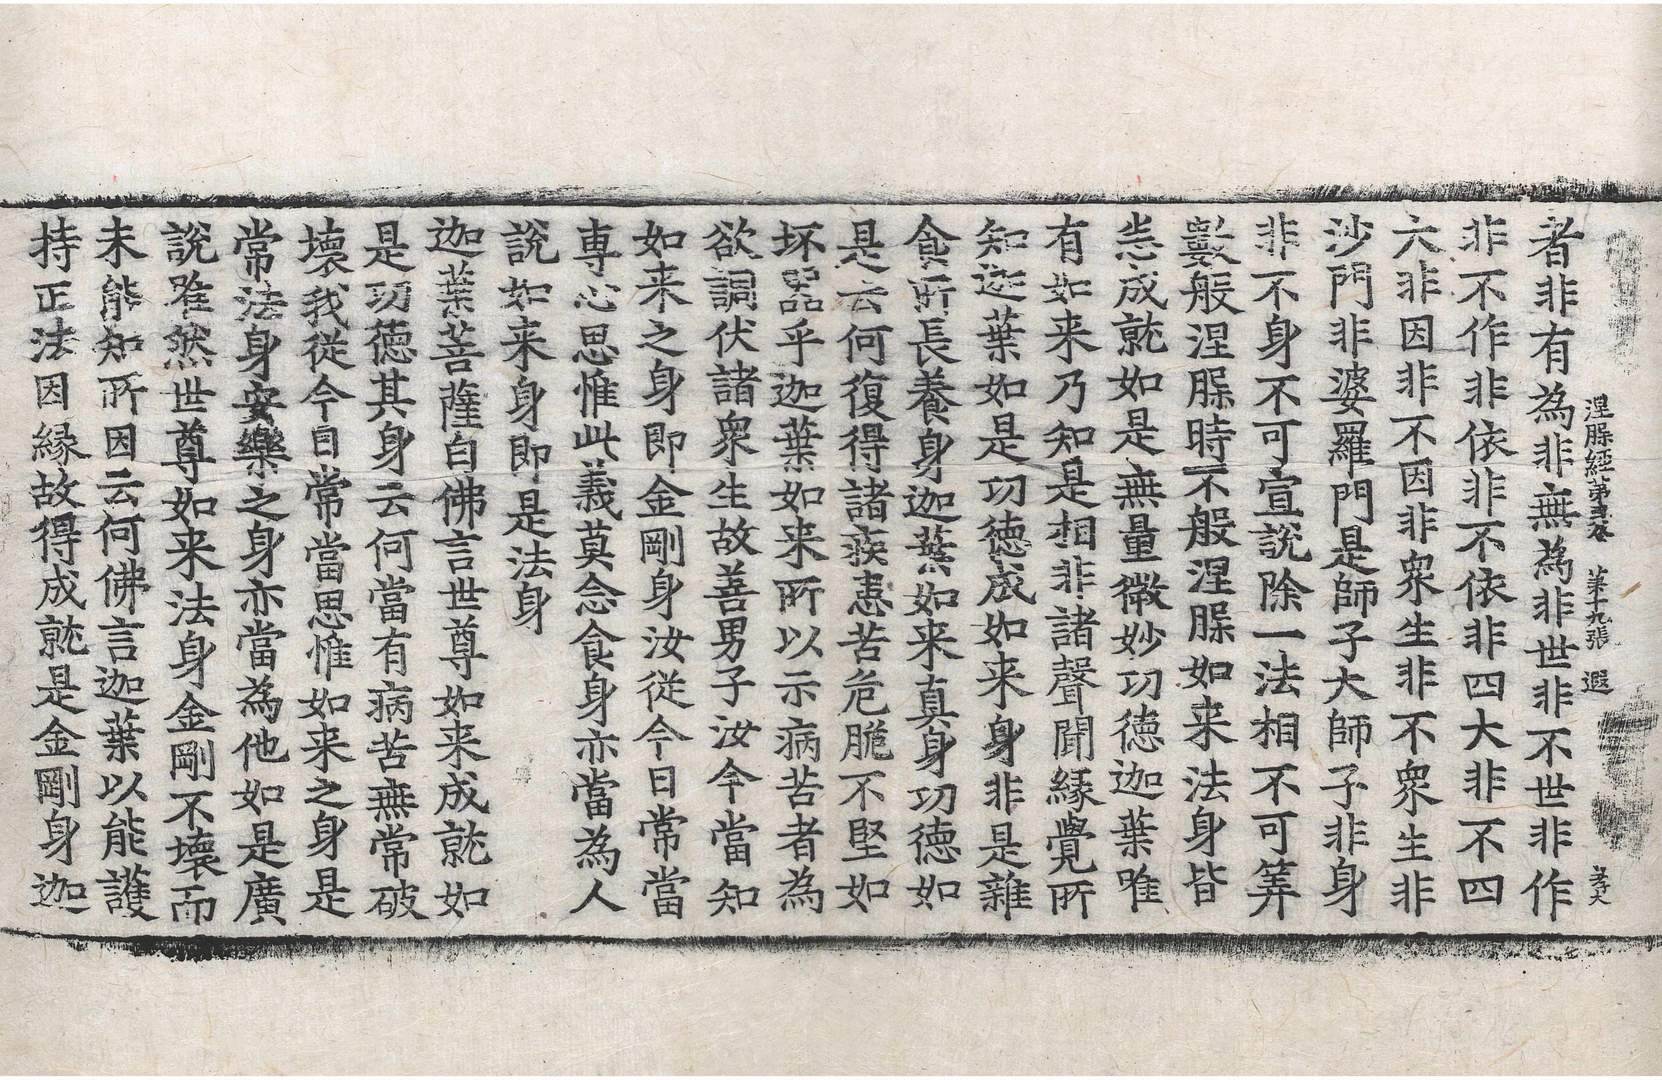 涅槃經第三卷 第十九張 遐
者非有為非無為非世非不世非作
非不作非依非不依非四大非不四
六非因非不因非衆生非不衆生非
沙門非婆羅門是師子大師子非身
非不身不可宣說除一法相不可筭
數般涅槃時不般涅槃如来法身皆
悉成就如是無量微妙功德迦葉唯
有如来乃知是相非諸聲聞緣覺所
知迦葉如是功德成如来身非是雜
食所長養身迦葉如来真身功德如
是云何復得諸疾患苦危脆不堅如
坏器乎迦葉如来所以示病苦者為
欲調伏諸衆生故善男子汝今當知
如来之身即金剛身汝従今日常當
専心思惟此義莫念食身亦當為人
說如来身即是法身
迦葉菩薩白佛言世尊如来成就如
是功德其身云何當有病苦無常破
壊我従今日常當思惟如来之身是
常法身安樂之身亦當為他如是廣
說唯然世尊如来法身金剛不壊而
未能知所因云何佛言迦葉以能護
持正法因緣故得成就是金剛身迦